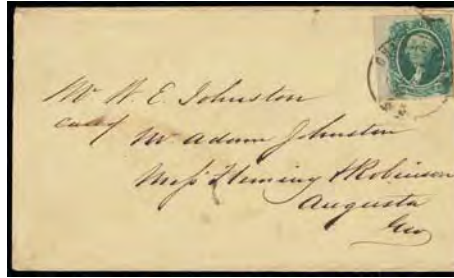 Mr W. E. Johnston
care of
Mr Adam Johnston
Messrs Fleming & Robinson
Augusta
Geo